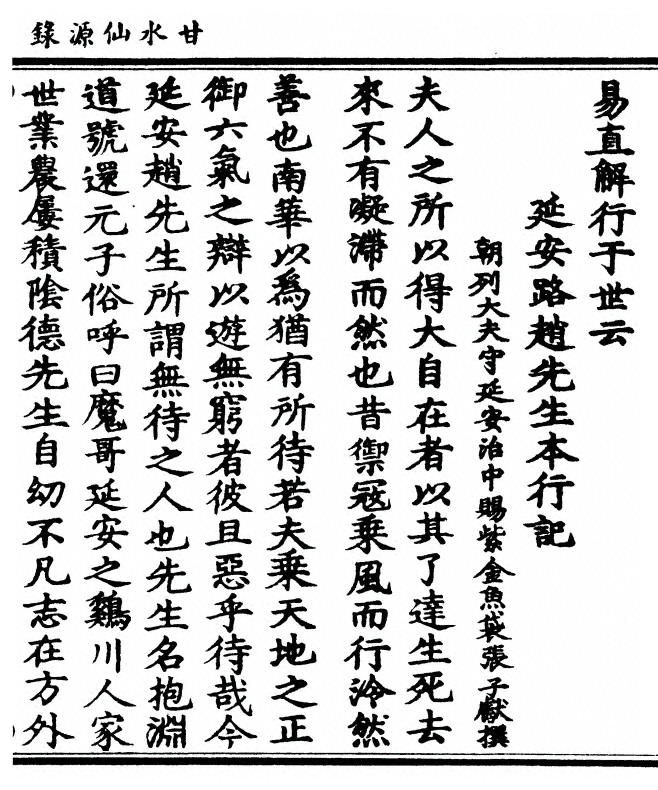 甘水仙源錄
易直解行于世云
延安路趙先生本行記
朝列大夫守延安治中賜紫金魚袋張子獻撰
夫人之所以得大自在者以其了達生死去
來不有凝滯而然也昔禦寇乘風而行泠然
善也南華以爲猶有所待若夫乘天地之正
御六氣之辯以遊無窮者彼且惡乎待哉今
延安趙先生所謂無待之人也先生名抱淵
道號還元子俗呼曰魔哥延安之鷄川人家
世業農屢積陰德先生自幼不凡志在方外